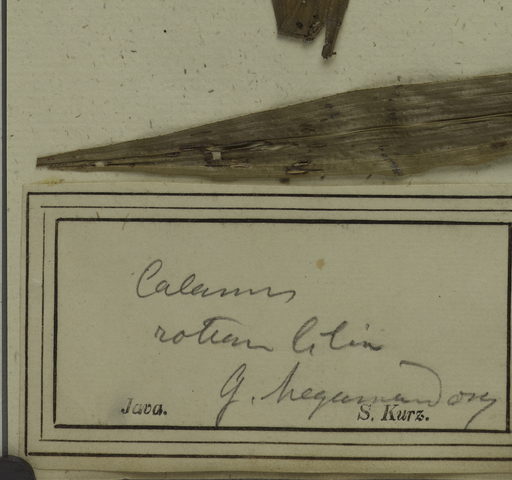 Calamus
rotan lilin
G. Megamendong
Java. S. Kurz.